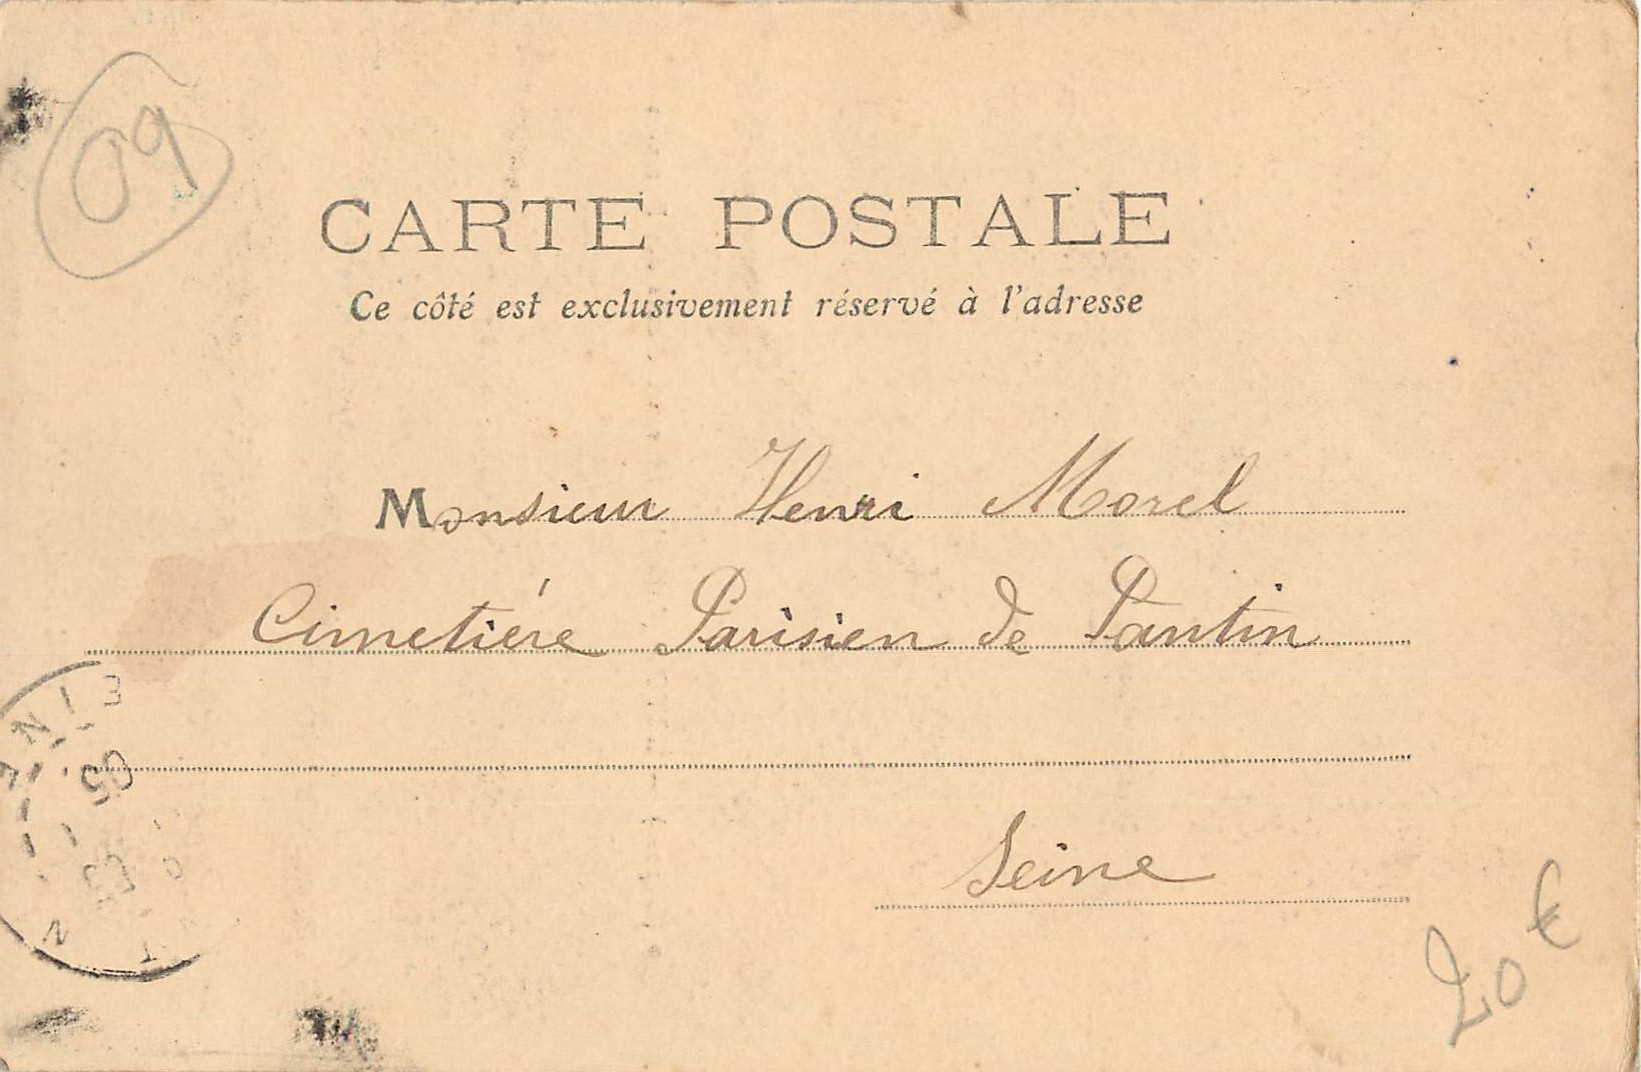 09
CARTE POSTALE
Ce côté est exclusivement réservé à l'adresse
Monsieur Henri Morel
Cimetiére Parisien de Pantin
Seine
05
20 €